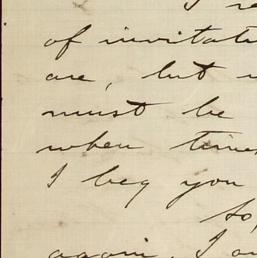 I
of invitat
are, but
must be
when time
I beg you
so,
again, I